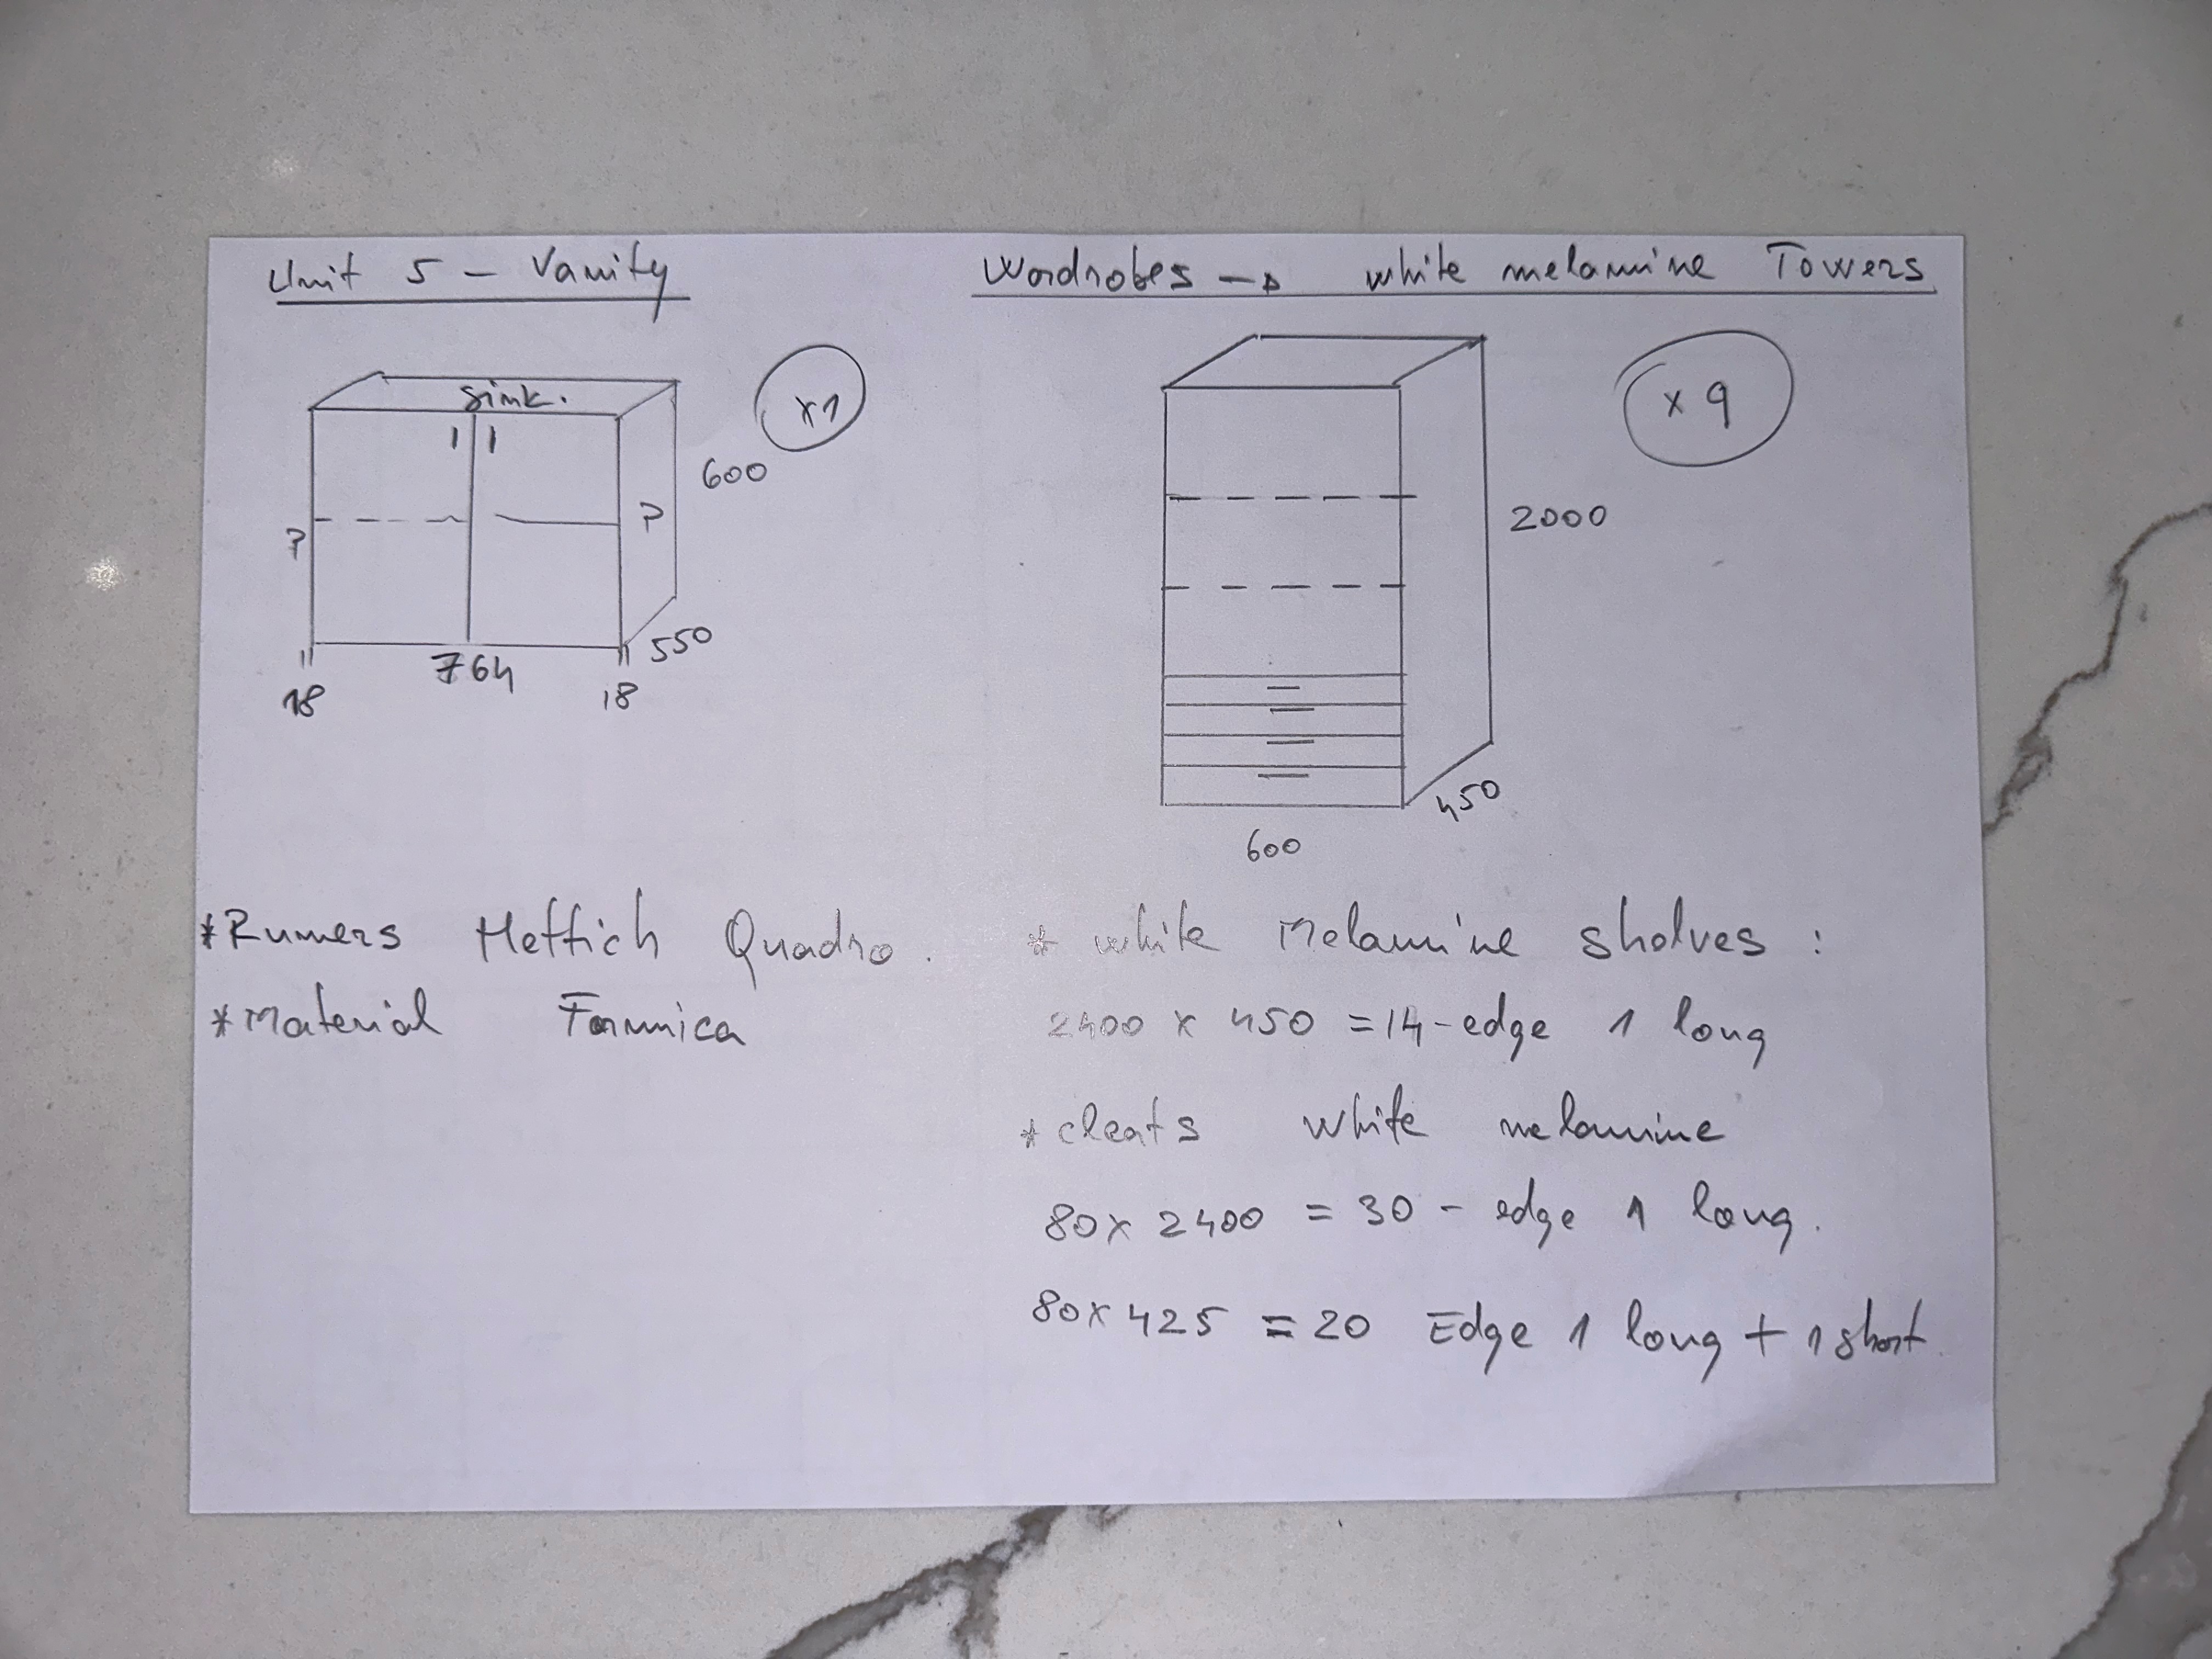 Unit 5 - Vanity
sink.
x1
600
P
P
550
18
764
18
* Runners Hettich Quadro.
* Material Formica
Wardrobes → white melamine Towers
x 9
2000
450
600
* white Melamine shelves :
2400 x 450 = 14 - edge 1 long
* cleats white melamine
80 x 2400 = 30 - edge 1 long.
80 x 425 = 20 Edge 1 long + 1 short.